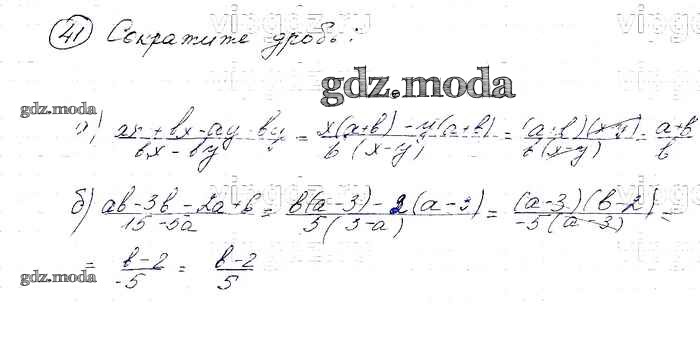 41 Сократите дробь:
gdz.moda
gdz.moda
а) ax + bx - ay - by / bx - by = x(a+b) - y(a+b) / b(x-y) = (a+b)(x-y) / b(x-y) = a+b / b
б) ab - 3b - 2a + 6 / 15 - 5a = b(a-3) - 2(a-3) / 5(3-a) = (a-3)(b-2) / -5(a-3) =
= b-2 / -5 = b-2 / 5
gdz.moda
gdz.moda